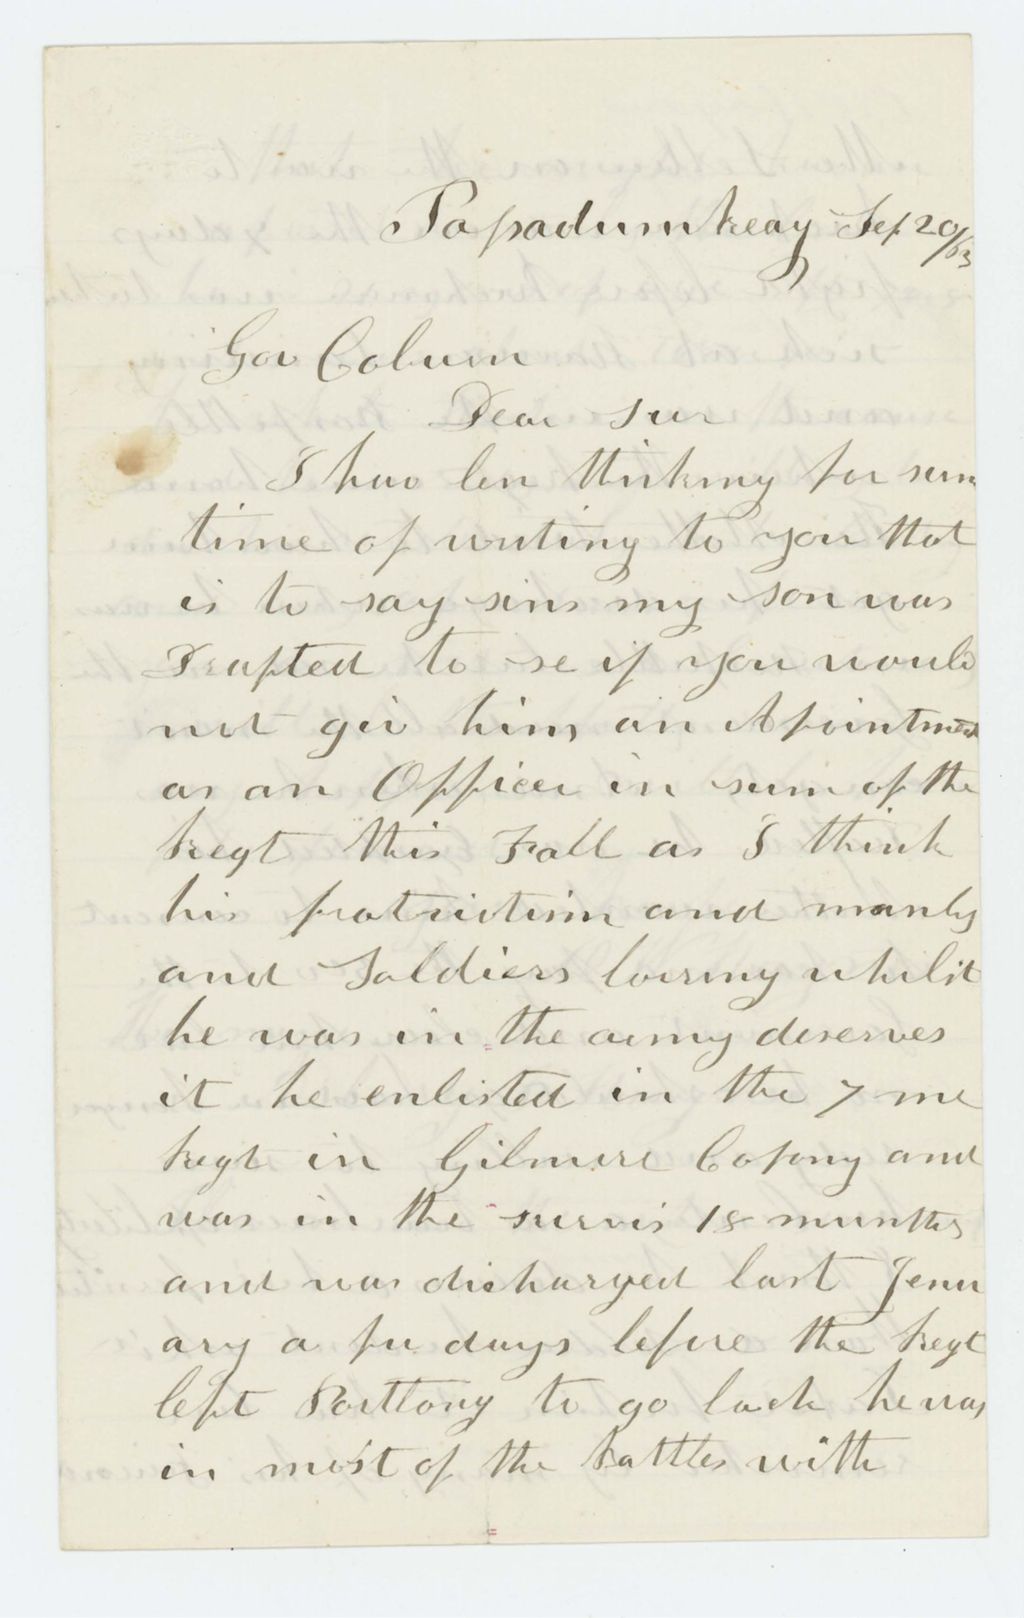 Papadumkeay Sep 20/63
Gov Coburn
Dear Sur
I hav ben thinking for sum
time of writing to you that
is to say sins my son was
Drafted to se if you would
not giv him an Apointment
as an Officer in sum of the
Regt this Fall as I think
his patriotism and manly
and Soldiers bearing whilst
he was in the army deserves
it he enlisted in the 7 me
Regt in Gilmore Copony and
was in the survis 18 munths
and was discharged last Jenu
ary a fu days before the Regt
left Porttony to go back he was
in most of the battles with